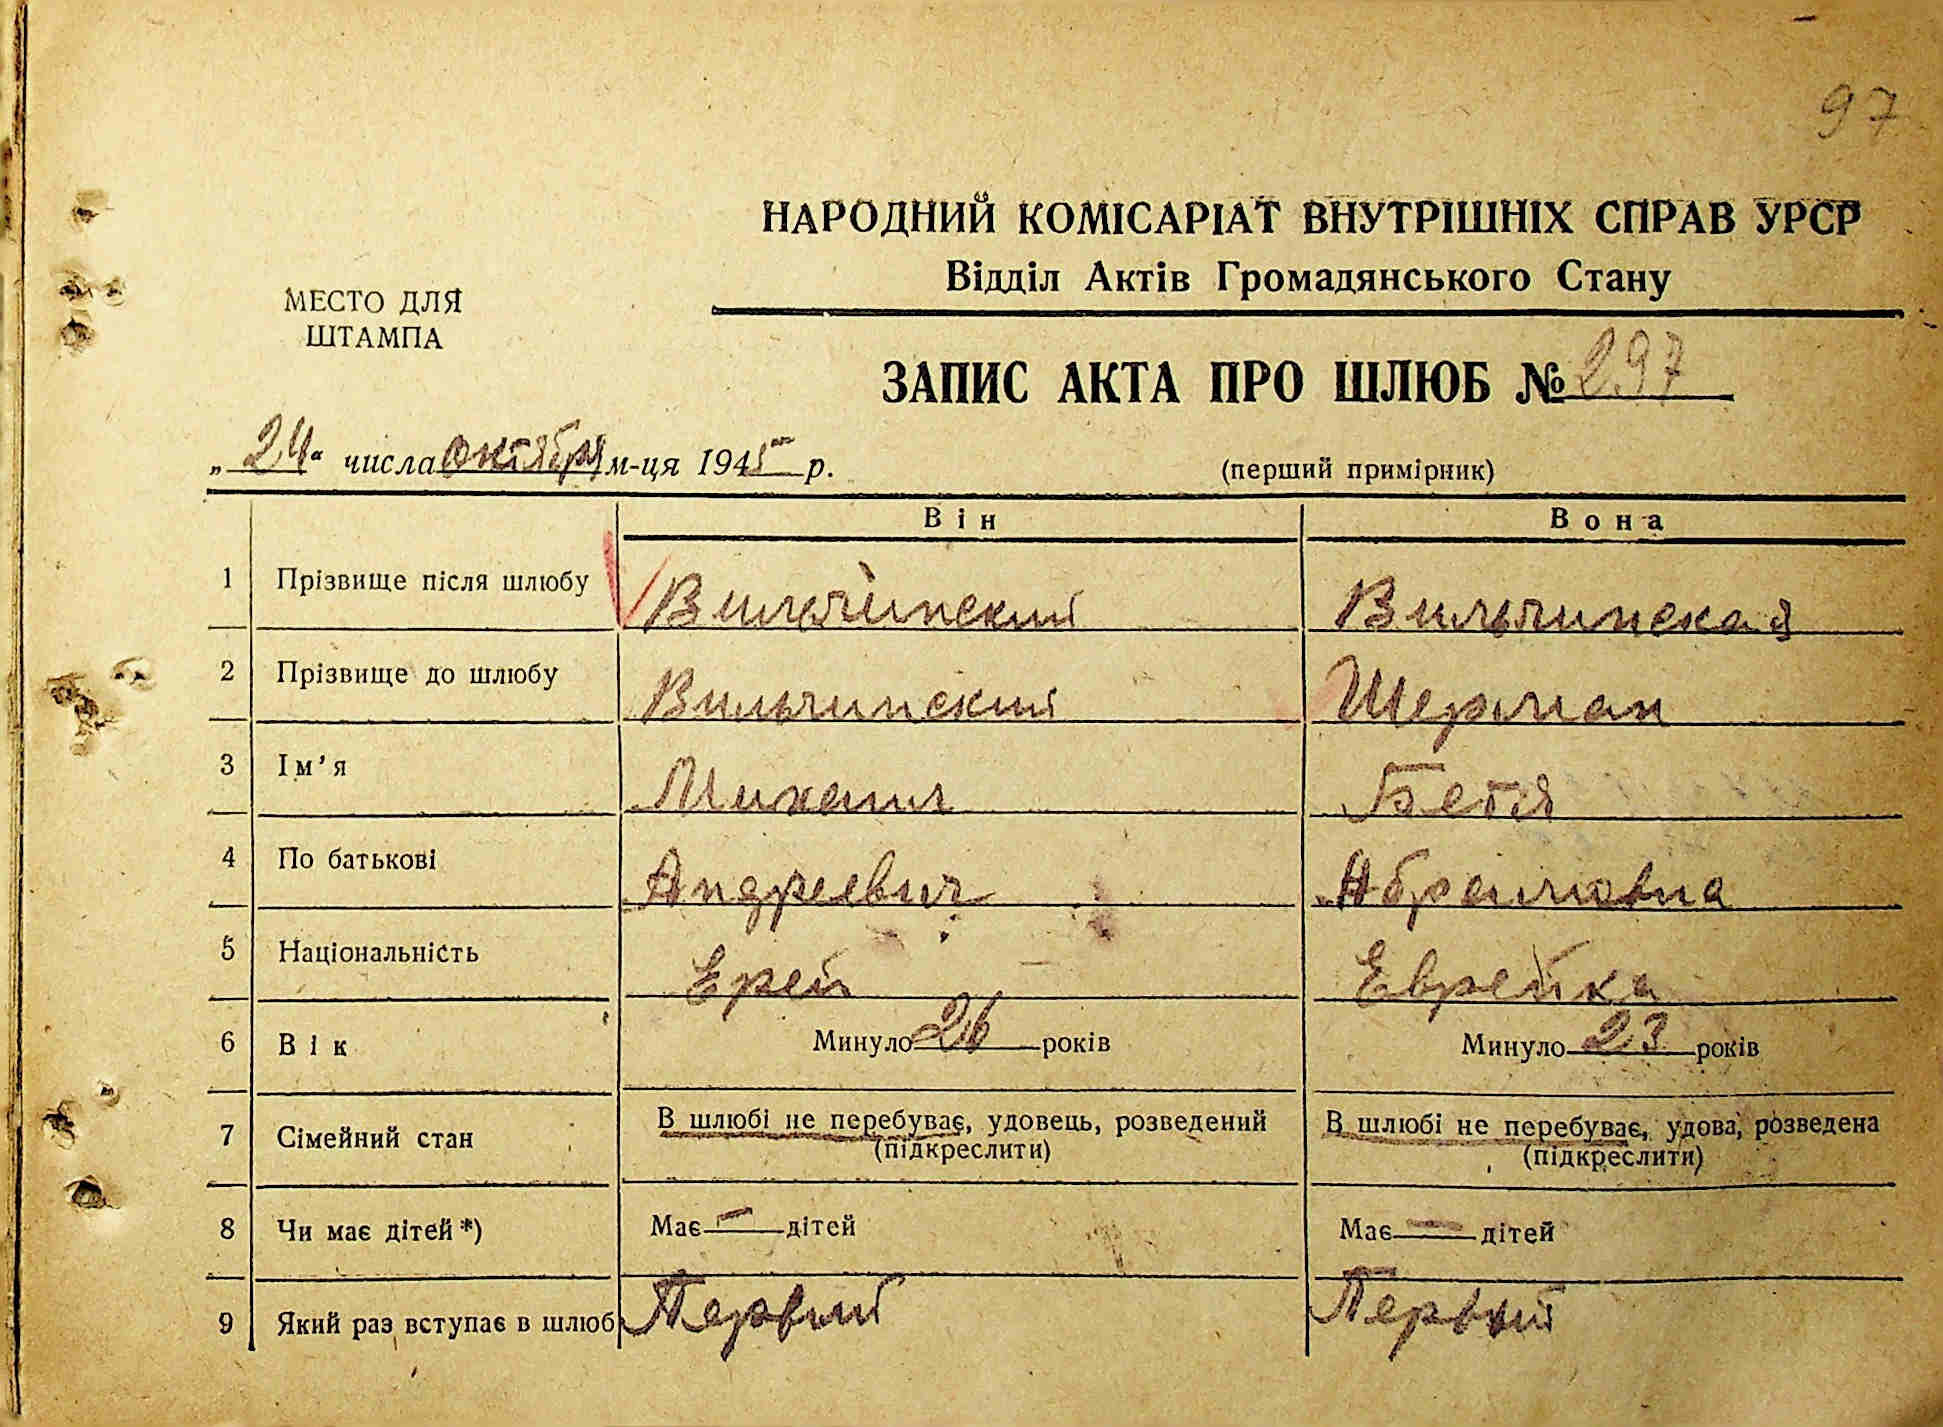 97
НАРОДНИЙ КОМІСАРІАТ ВНУТРІШНІХ СПРАВ УРСР
Відділ Актів Громадянського Стану
МЕСТО ДЛЯ
ШТАМПА
ЗАПИС АКТА ПРО ШЛЮБ № 297
„24“ числа октября м-ця 1945 р.
(перший примірник)
Він Вона
1 Прізвище після шлюбу Вильчинский Вильчинская
2 Прізвище до шлюбу Вильчинский Шерман
3 Ім’я Михаил Бетя
4 По батькові Андреевич Абрамовна
5 Національність Ерей Еврейка
6 Вік Минуло 26 років Минуло 23 років
7 Сімейний стан В шлюбі не перебуває, удовець, розведений В шлюбі не перебуває, удова, розведена
(підкреслити) (підкреслити)
8 Чи має дітей *) Має — дітей Має — дітей
9 Який раз вступає в шлюб Первый Первый